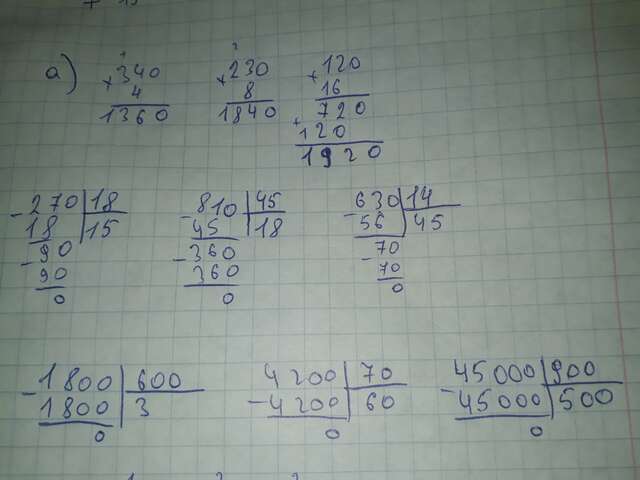 а)
340 230 120
× 4 × 8 × 16
1360 1840 720
+ 120
1920
- 270 18 - 810 45 - 630 14
18 15 45 18 56 45
- 90 - 360 - 70
90 360 70
0 0 0
- 1800 600 - 4200 70 - 45000 900
1800 3 4200 60 45000 500
0 0 0